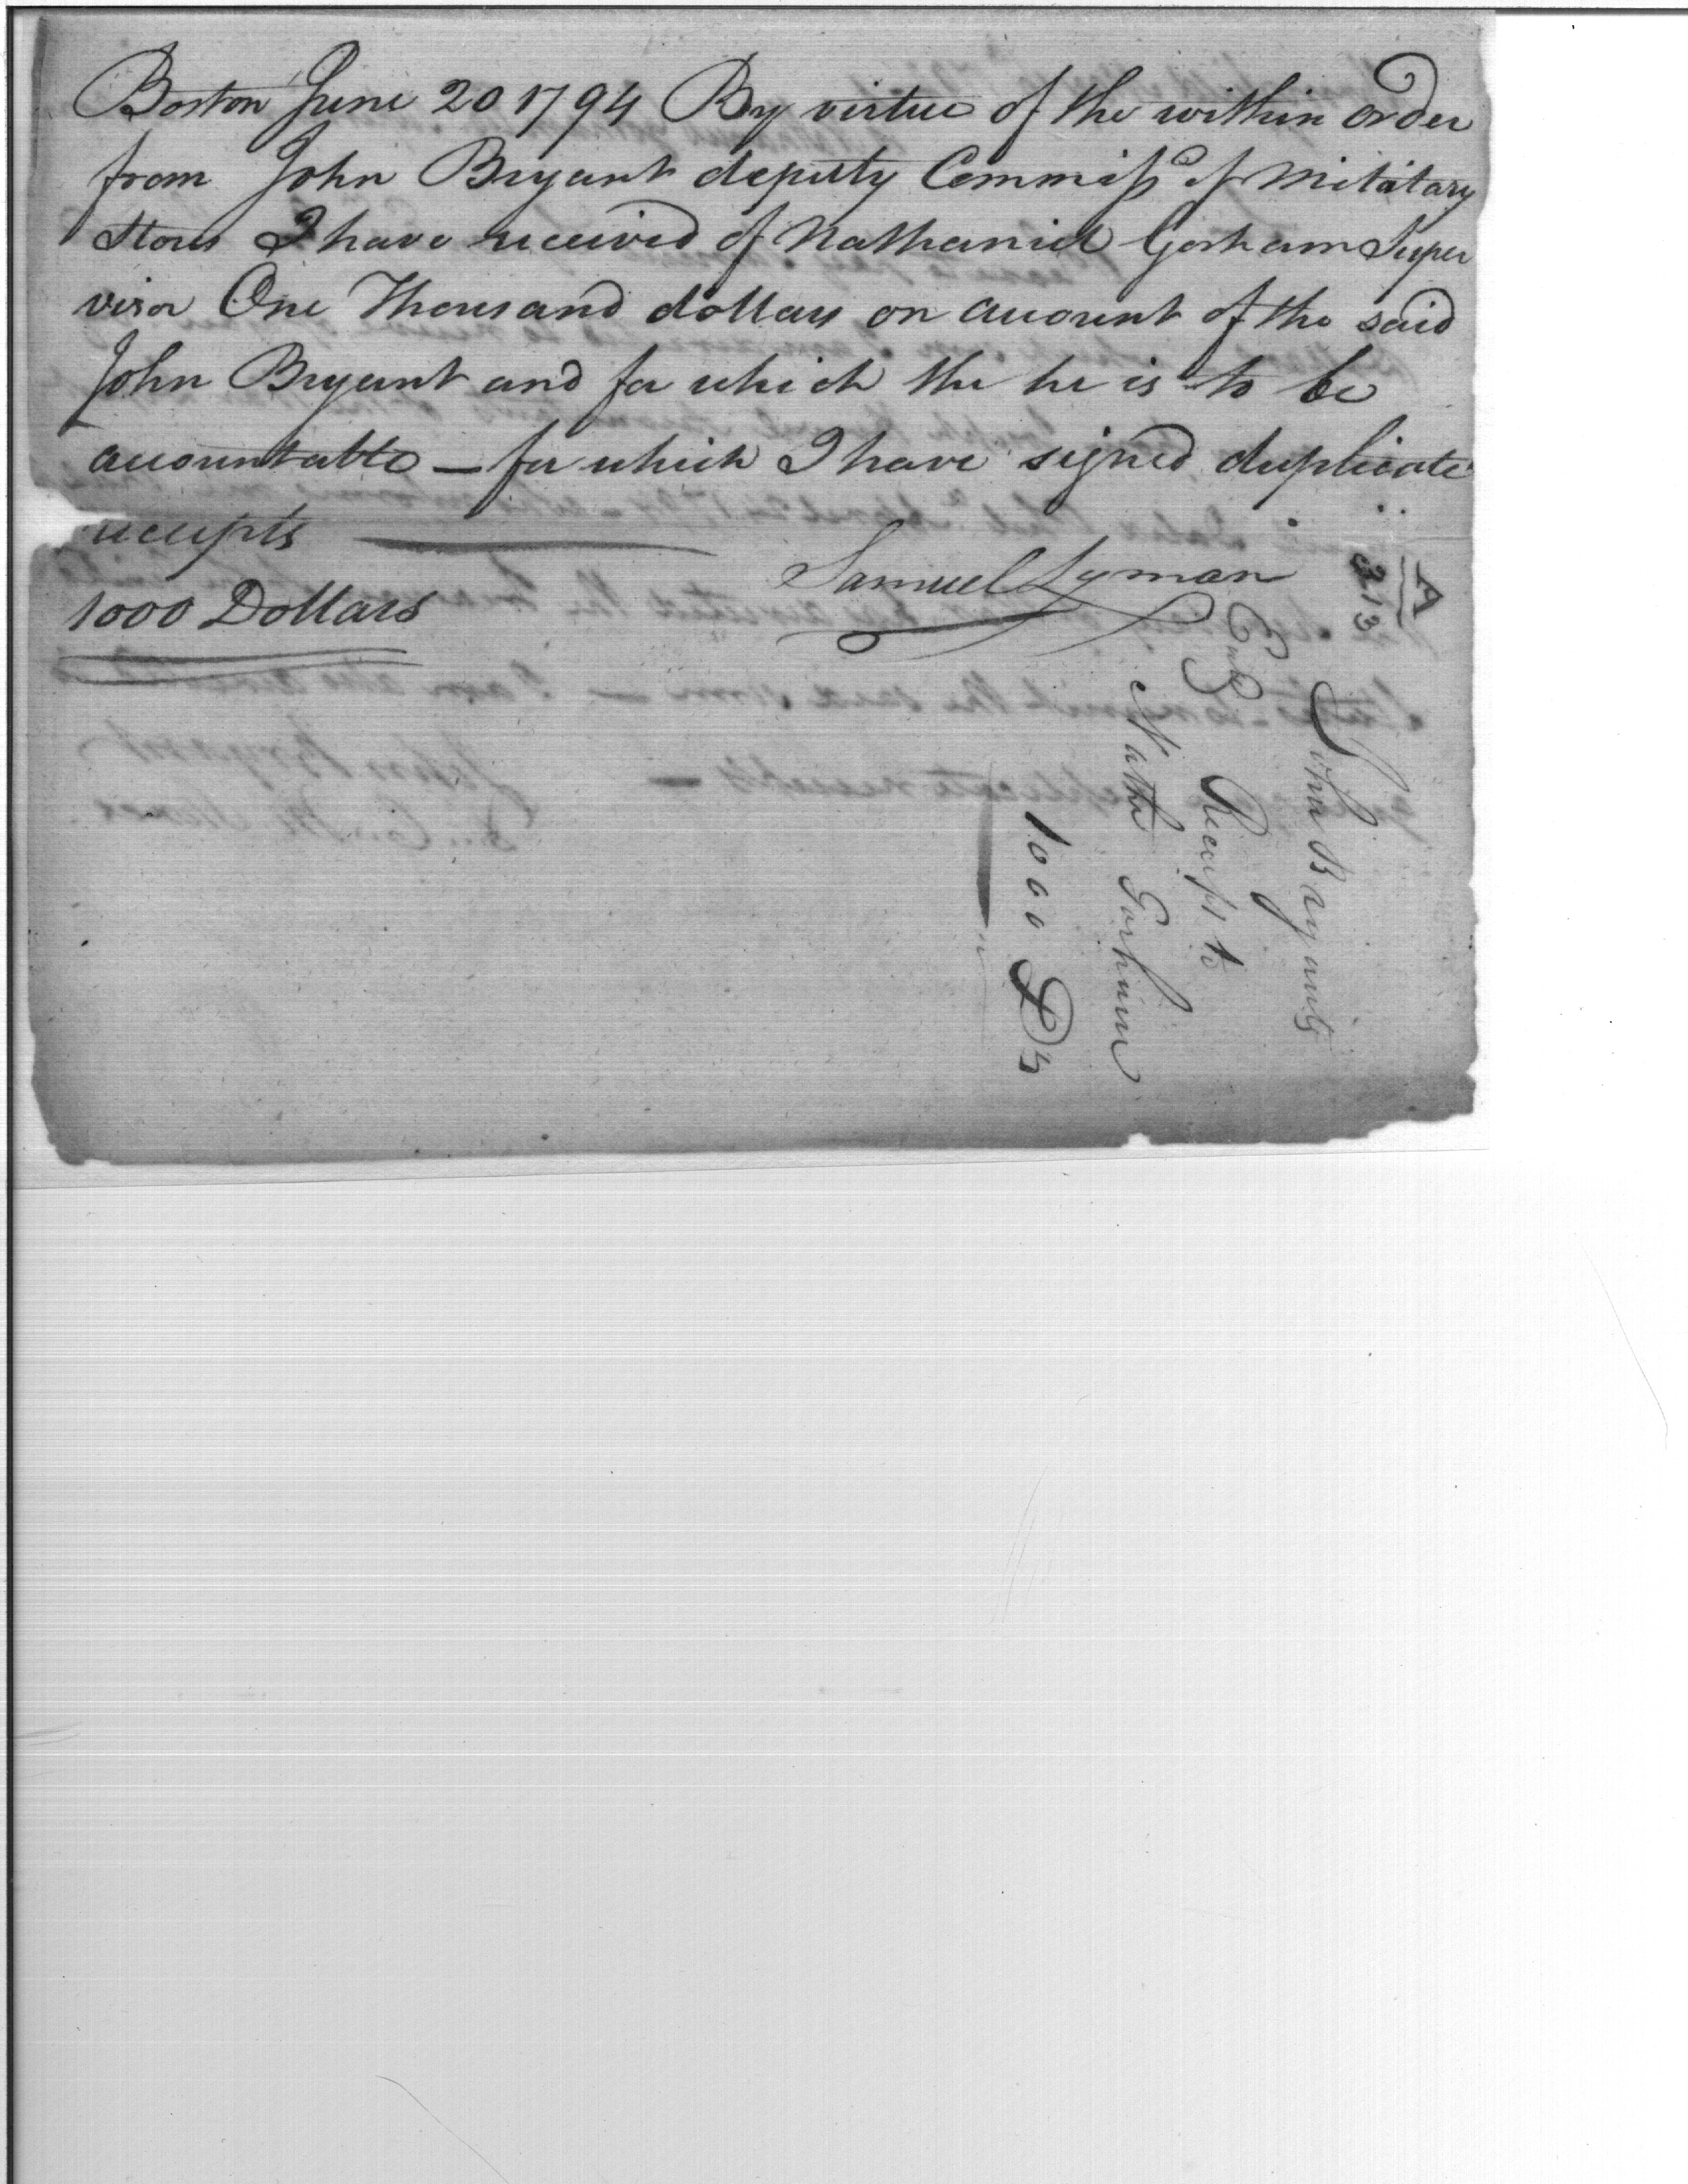 Boston June 20 1794 By virtue of the within order
from John Bryant deputy Commissy of Military
Stores I have received of Nathaniel Gorham Super
visor One Thousand dollars on account of the said
John Bryant and for which the he is to be
accountable — for which I have signed duplicate
receipts
Samuel Lyman
1000 Dollars
A
313
John Bryants
Receipt to
Nathl Gorham
1000 Ds